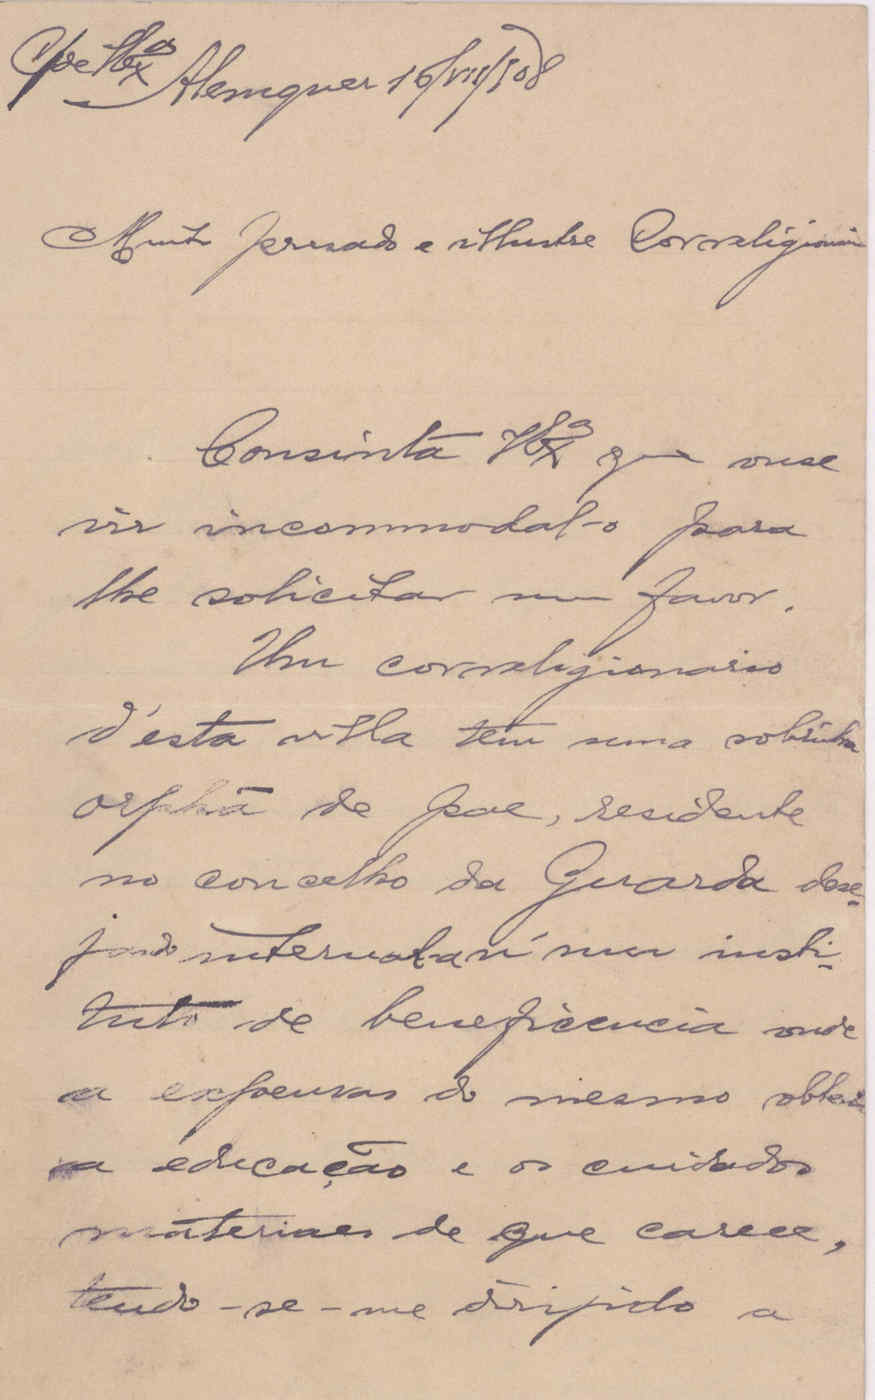 Alemquer 16/VII/908
Muito presado e illustre Correligionario
Consinta V. Ex.ª que ouse
vir incommodal-o para
lhe solicitar um favor.
Um correligionario
d'esta villa tem uma sobrinha
orphã de pae, residente
no concelho da Guarda dese-
jando internal-a n'um insti-
tuto de beneficencia onde
a expensas do mesmo obtenha
a educação e os cuidados
materiaes de que carece,
tendo-se-me dirigido a